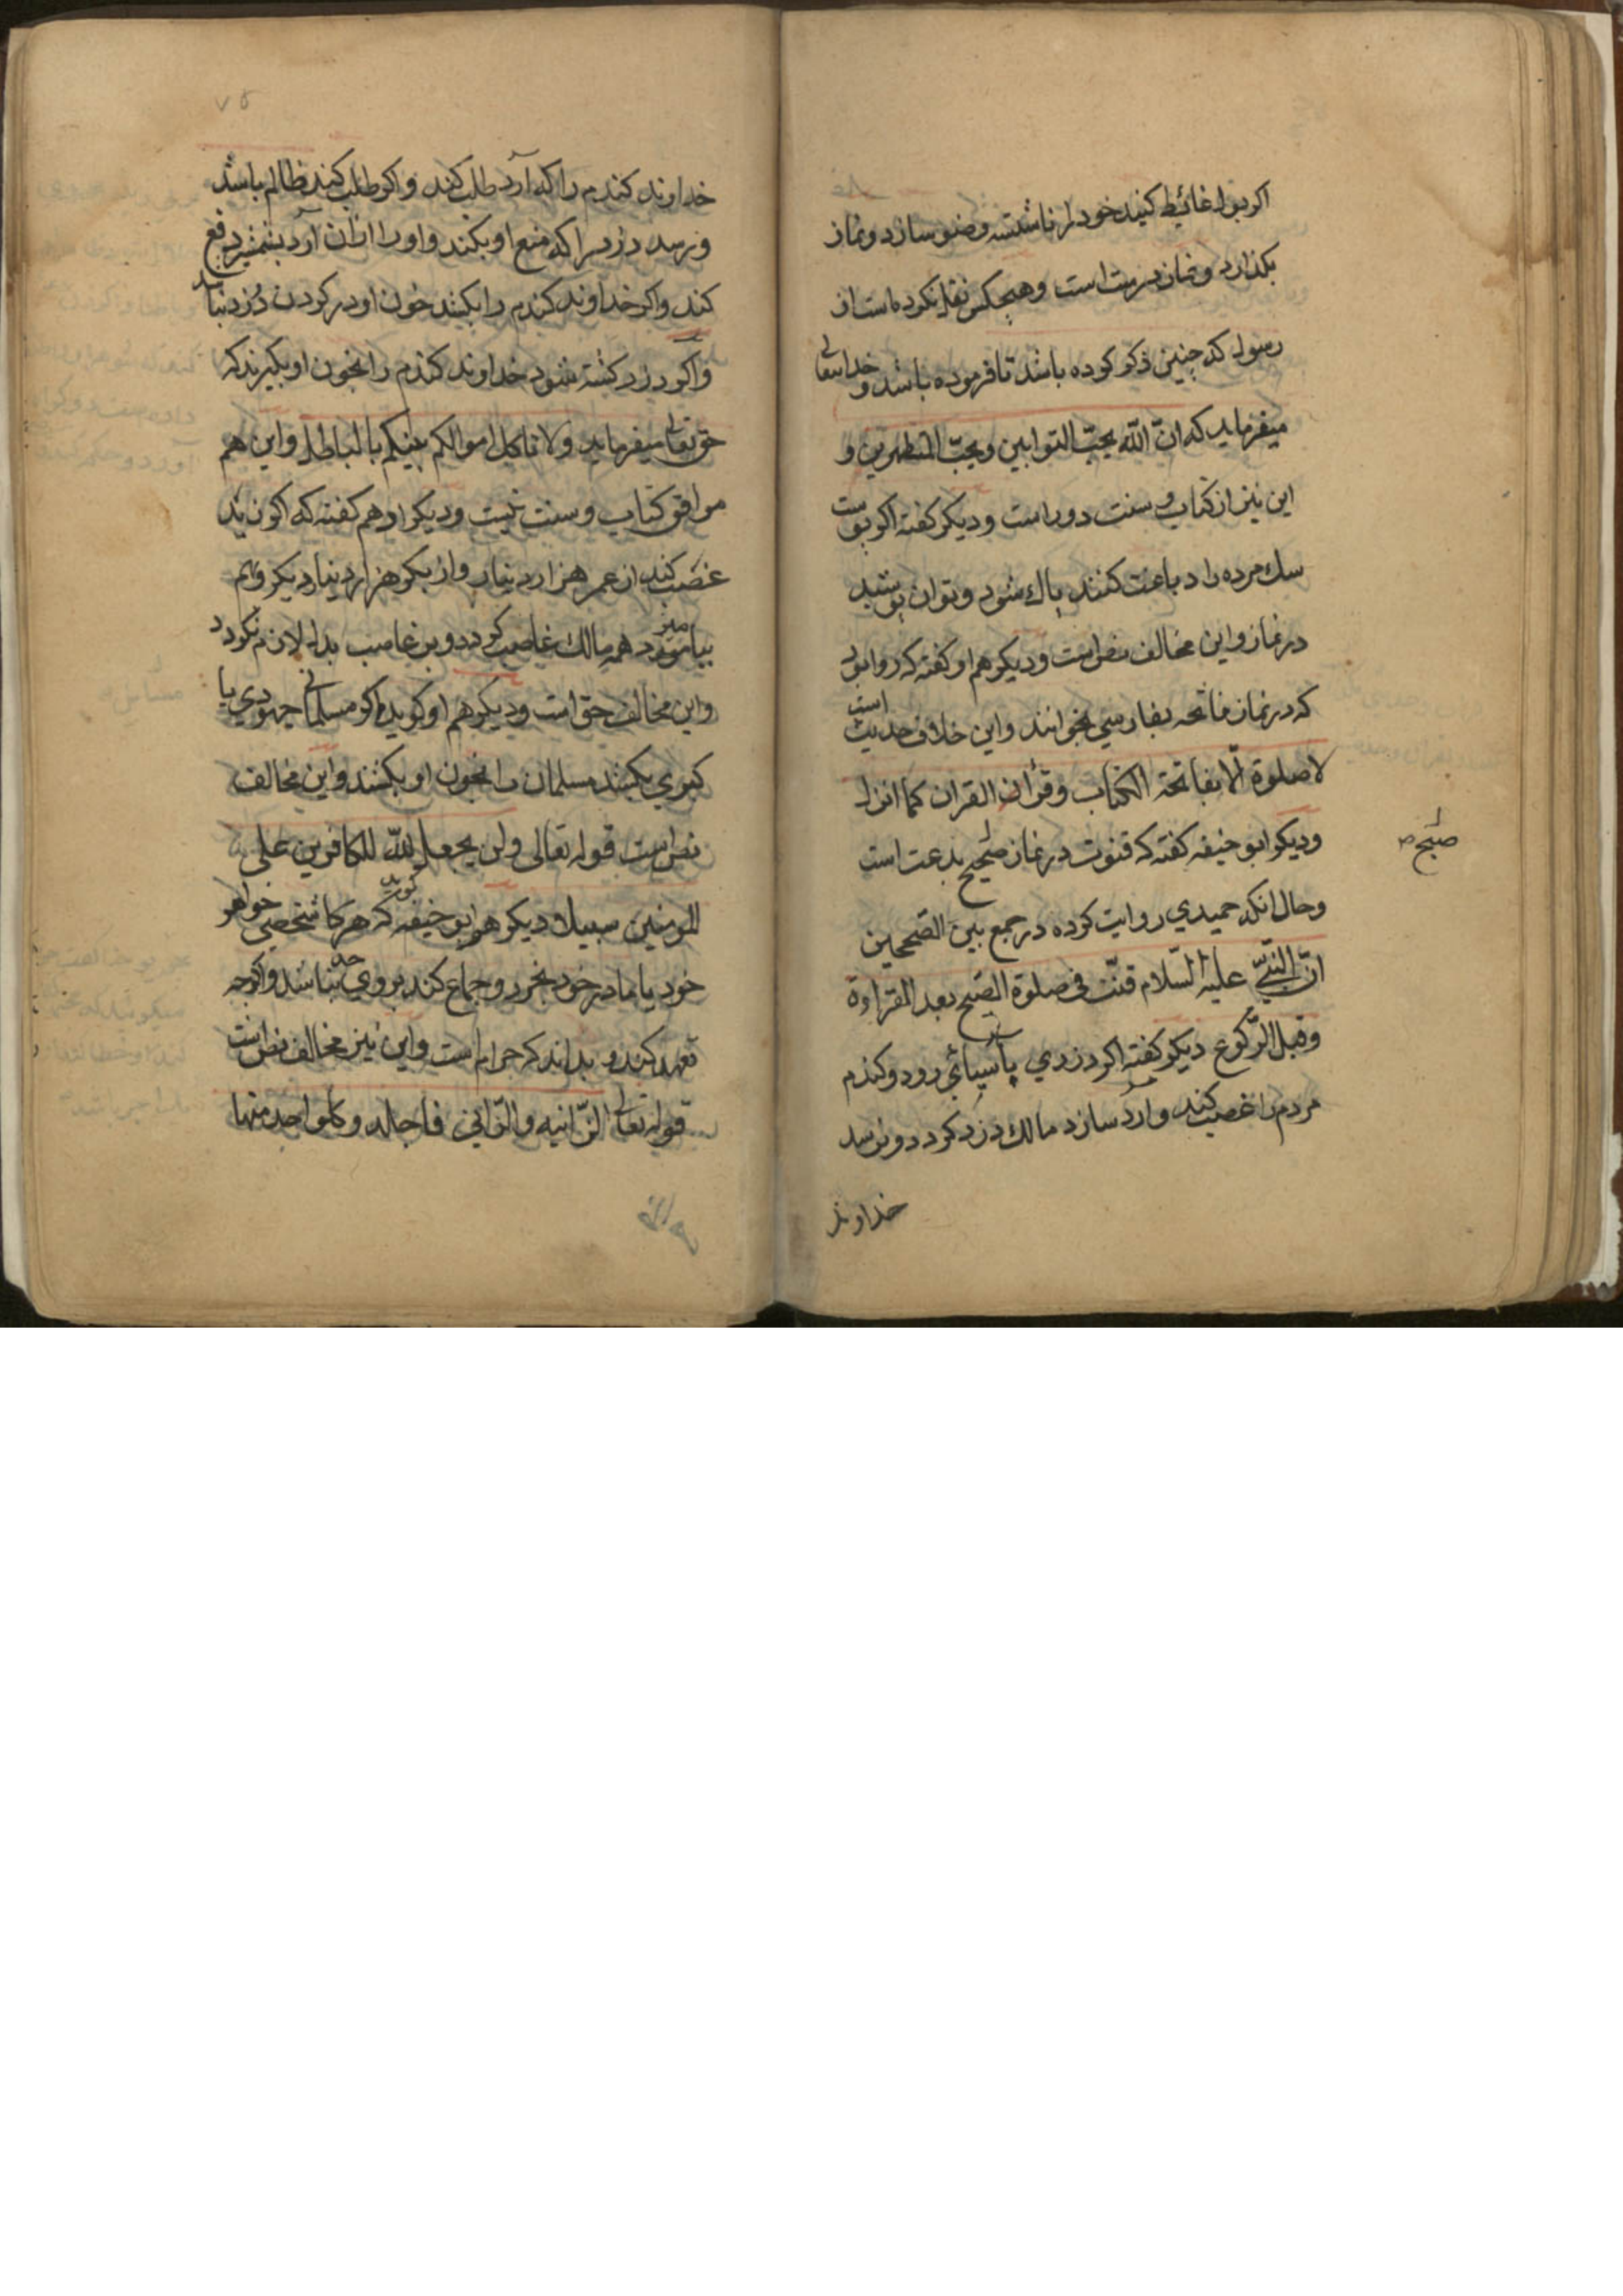 اکر بول غائط کنید خود را ناشسته وضو سازد و نماز
بکذارد و نماز درست است و هیچکس نقل نکرده است از
رسول که چنین ذکر کرده باشد تا فرموده باشد و خدایتعالی
میفرماید که انّ اللّه یحبّ التوابین و یحبّ المتطهرین و
این نیز از کتاب و سنت دور است و دیکر کفته اکر پوست
سك مرده را دباغت کنند پاك شود و توان پوشید
در نماز و این مخالف نص است و دیکر هم او کفته که روا بود
که در نماز فاتحه بفارسی بخوانند و این خلاف حدیث است
لا صلوة الّا بفاتحة الکتاب و قرأن القران کما انزل
و دیکر ابو حنیفه کفته که قنوت در نماز صبح بدعت است
صبح
و حال انکه حمیدی روایت کرده در جمع بین الصحیحین
انّ النبیّ علیه السّلام قنّت فی صلوة الصّبح بعد القراءة
و قبل الرّکوع دیکر کفته اکر دزدی باسیائی رود و کندم
مردم را غصب کند و ارد سازد مالك دزد کردد و نرسد
خداوند
۷۵
خداوند کندم را که آرد طلب کند و اکر طلب کند ظالم باشد
و نرسد دزد را که منع او بکند و او را از ان آرد بشمشیر دفع
کند و اکر خداوند کندم را بکشد خون او در کردن دزد نباشد
و اکر دزد کشته شود خداوند کندم را بخون او بکیرند که
حق تعالی میفرماید و لا تاکل اموالکم بینکم بالباطل و این هم
موافق کتاب و سنت نیست و دیکر او هم کفته که اکر زید
غصب کند از عمر هزار دینار و از بکر هزار دینار دیکر و بهم
بیامیزد همه مالك غاصب کردد و بر غاصب بدل لازم نکردد
و این مخالف حق است و دیکر هم او کوید اکر مسلمانی جهودی یا
کبری بکشد مسلمان را بخون او بکشند و این مخالف
نص است قوله تعالی و لن یجعل اللّه للکافرین علی
المومنین سبیلا و دیکر هم ابو حنیفه کوید که هرکا شخصی خواهر
خود یا مادر خود بخرد و جماع کند بر وی حد نباشد و اکرچه
تعهد کند و بداند که حرام است و این نیز مخالف نص است
قوله تعالی الزّانیه و الزّانی فاجلدو کلو احد منها